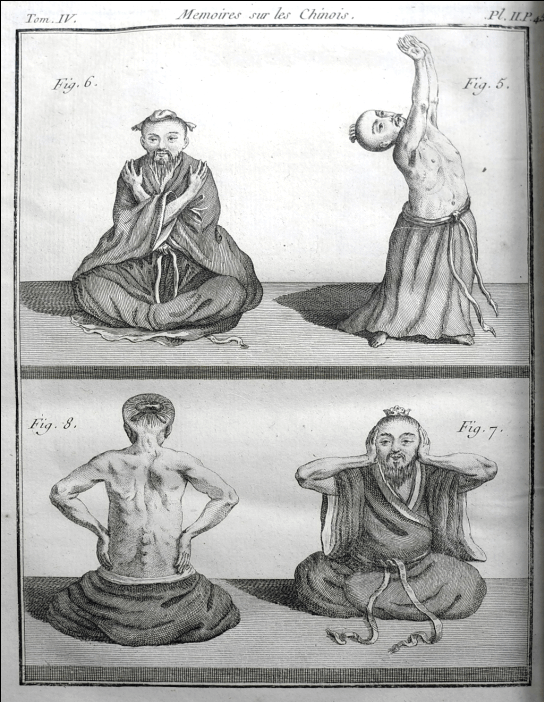 Tom. IV. Memoires sur les Chinois. Pl. II. P. 4
Fig. 6. Fig. 5.
Fig. 8. Fig. 7.